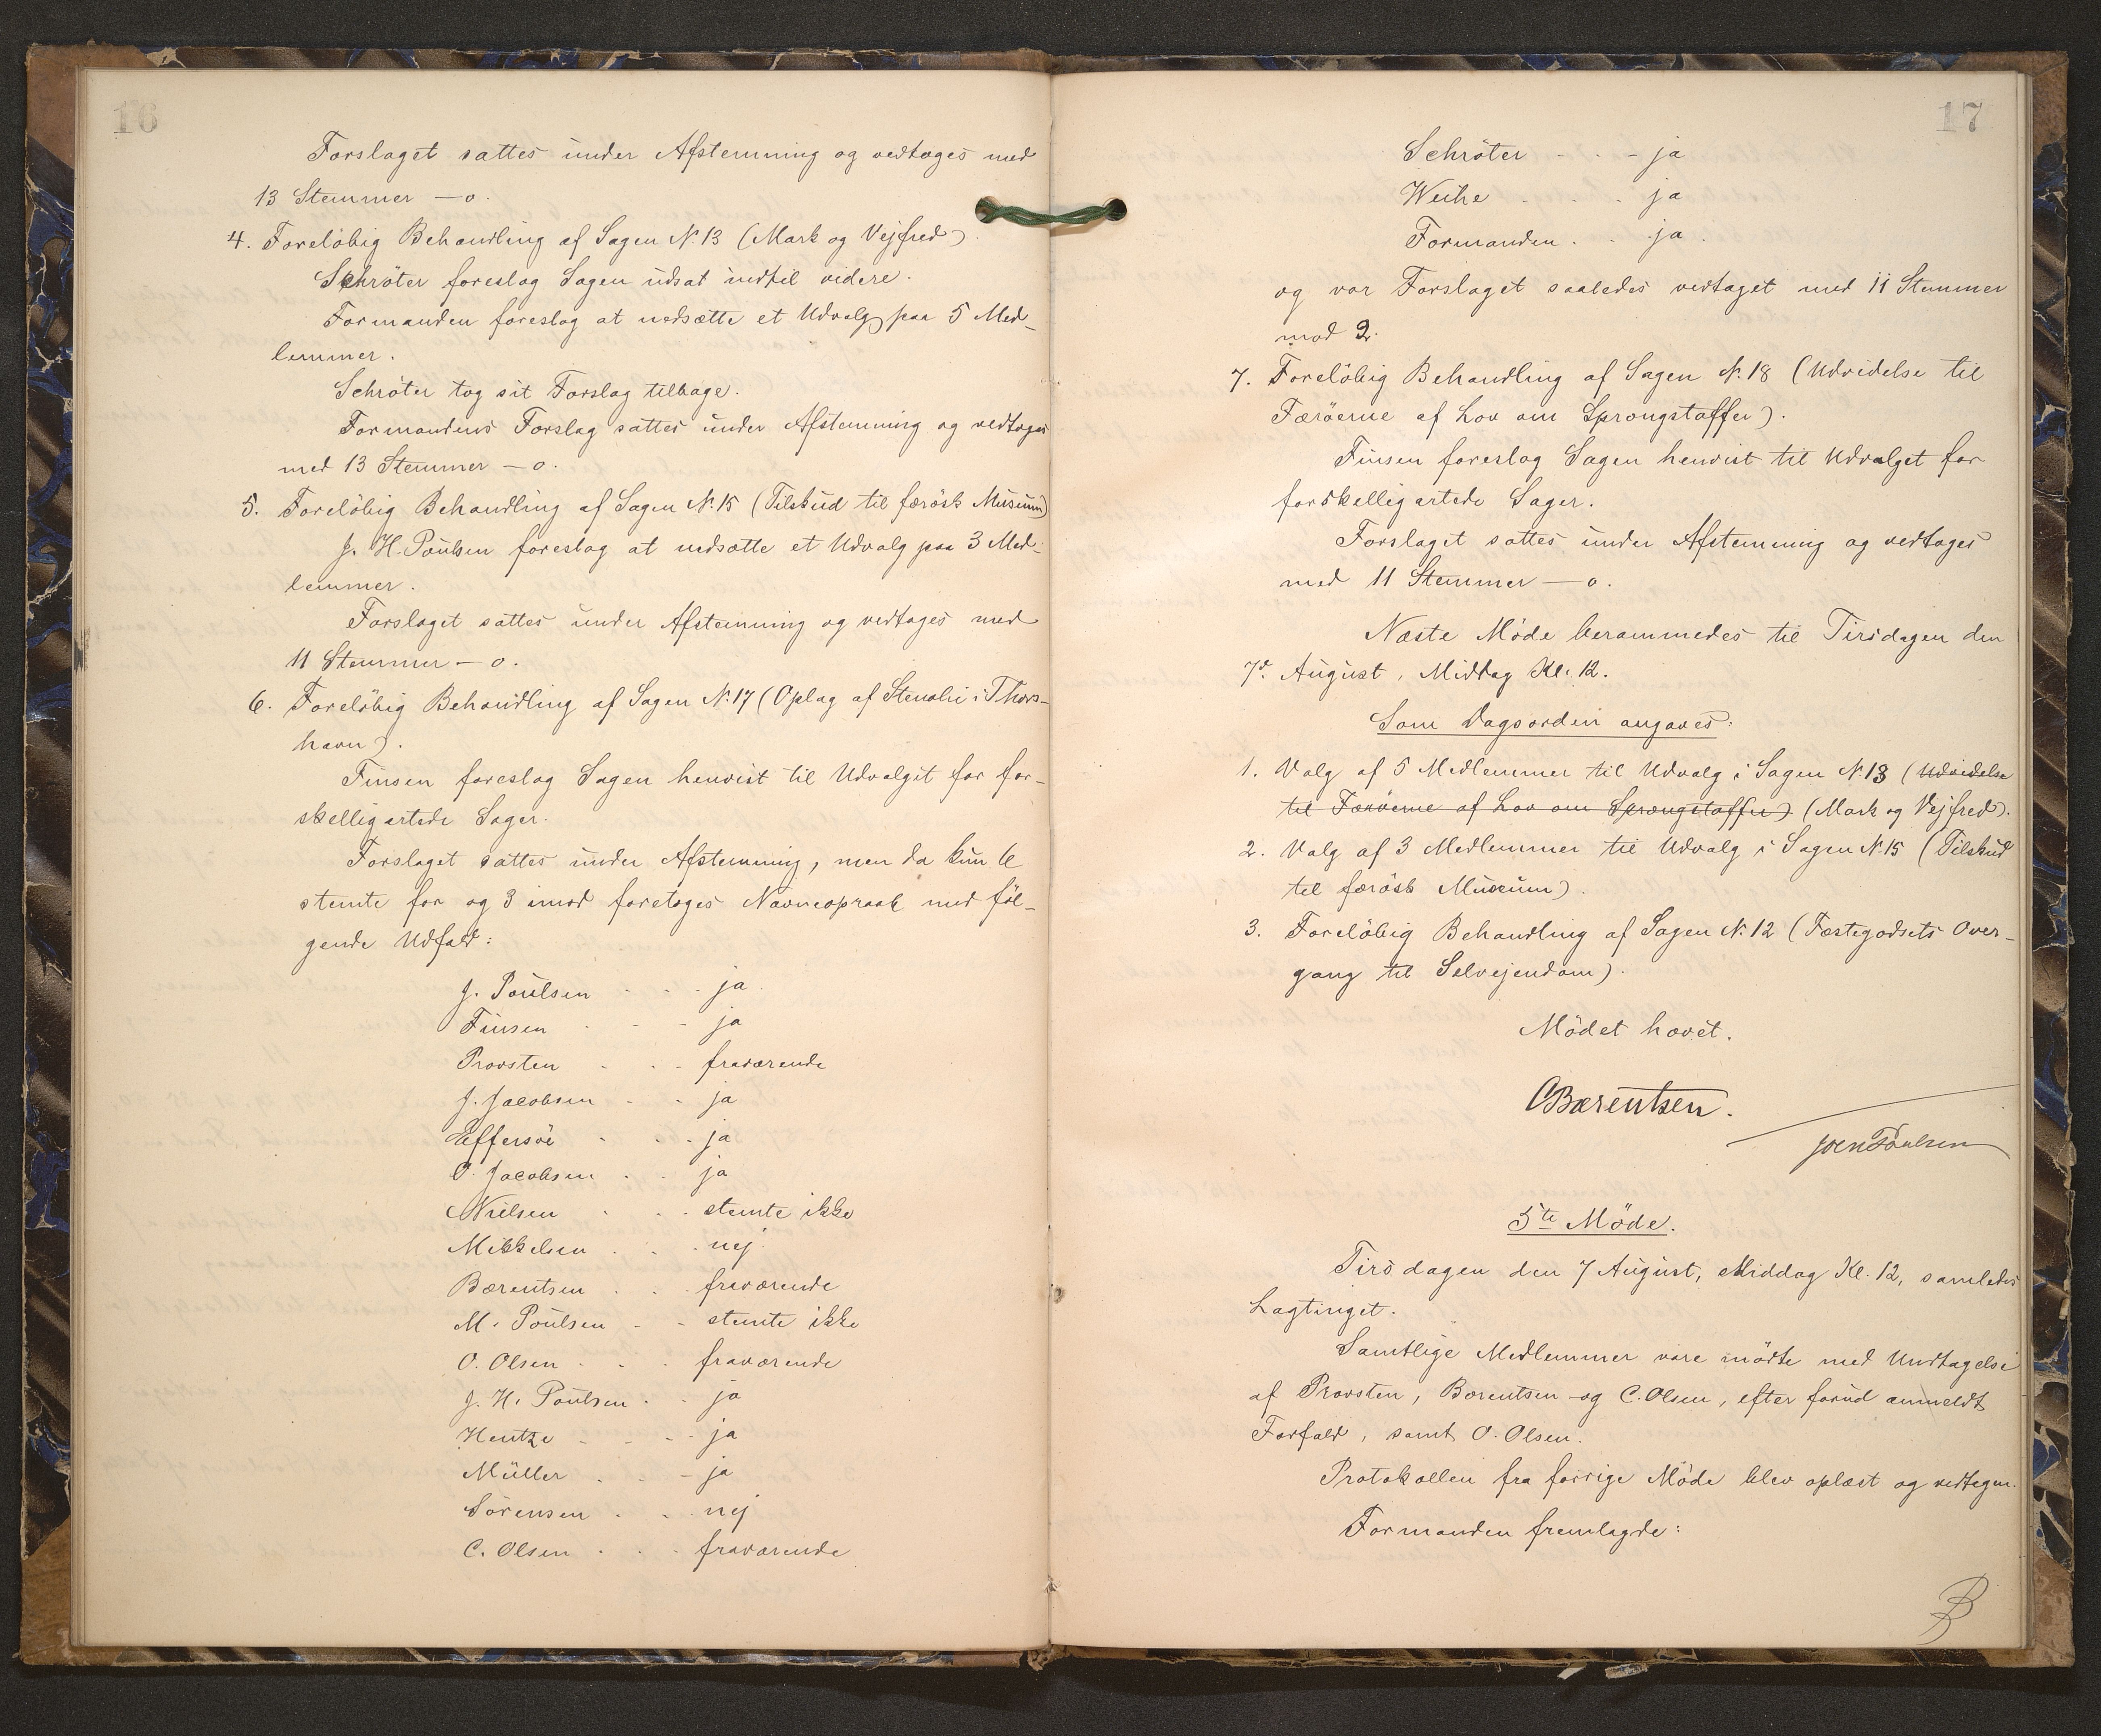 16
Forslaget sattes under Afstemning og vedtoges med
13 Stemmer — 0.
4. Foreløbig Behandling af Sagen N. 13 (Mark og Vejfred).
Schröter foreslog Sagen udsat indtil videre.
Formanden foreslog at nedsætte et Udvalg paa 5 Med-
lemmer.
Schröter tog sit Forslag tilbage.
Formandens Forslag sattes under Afstemning og vedtoges
med 13 Stemmer — 0.
5. Foreløbig Behandling af Sagen N. 15 (Tilskud til færøsk Museum)
J. H. Poulsen foreslog at nedsætte et Udvalg paa 3 Med-
lemmer.
Forslaget sattes under Afstemning og vedtoges med
11 Stemmer — 0.
6. Foreløbig Behandling af Sagen N. 17 (Oplag af Stenolie i Thors-
havn).
Finsen foreslog Sagen henvist til Udvalget for for-
skelligartede Sager.
Forslaget sattes under Afstemning, men da kun 6
stemte for og 3 imod foretoges Navneopraab med føl-
gende Udfald:
J. Poulsen - - - ja
Finsen - - - ja
Provsten - - - fraværende
J. Jacobsen - - ja
Effersöe - - - ja
O. Jacobsen - - ja
Nielsen - - - stemte ikke
Mikkelsen - - - nej
Bærentsen - - - fraværende
M. Poulsen - - stemte ikke
O. Olsen - - - fraværende
J. H. Poulsen - - ja
Hentze - - - - ja
Müller - - - ja
Sörensen - - - nej
C. Olsen - - - fraværende
17
Schröter - - - ja
Weihe - - - ja
Formanden - - ja
og var Forslaget saaledes vedtaget med 11 Stemmer
mod 2.
7. Foreløbig Behandling af Sagen N. 18 (Udvidelse til
Færøerne af Lov om Sprængstoffer).
Finsen foreslog Sagen henvist til Udvalget for
forskelligartede Sager.
Forslaget sattes under Afstemning og vedtoges
med 11 Stemmer — 0.
Næste Møde berammedes til Tirsdagen den
7d August, Middag Kl. 12.
Som Dagsorden angaves:
1. Valg af 5 Medlemmer til Udvalg i Sagen N. 13 (Udvidelse
til Færøerne af Lov om Sprængstoffer) (Mark og Vejfred).
2. Valg af 3 Medlemmer til Udvalg i Sagen N. 15 (Tilskud
til færøsk Museum).
3. Foreløbig Behandling af Sagen N. 12 (Fæstegodsets Over-
gang til Selvejendom).
Mødet hævet.
CBærentsen.
Joen Poulsen
5te Møde.
Tirsdagen den 7 August, Middag Kl. 12, samledes
Lagtinget.
Samtlige Medlemmer vare mødte med Undtagelse
af Provsten, Bærentsen og C. Olsen, efter forud anmeldt
Forfald, samt O. Olsen.
Protokollen fra forrige Møde blev oplæst og vedtagen.
Formanden fremlagde:
B